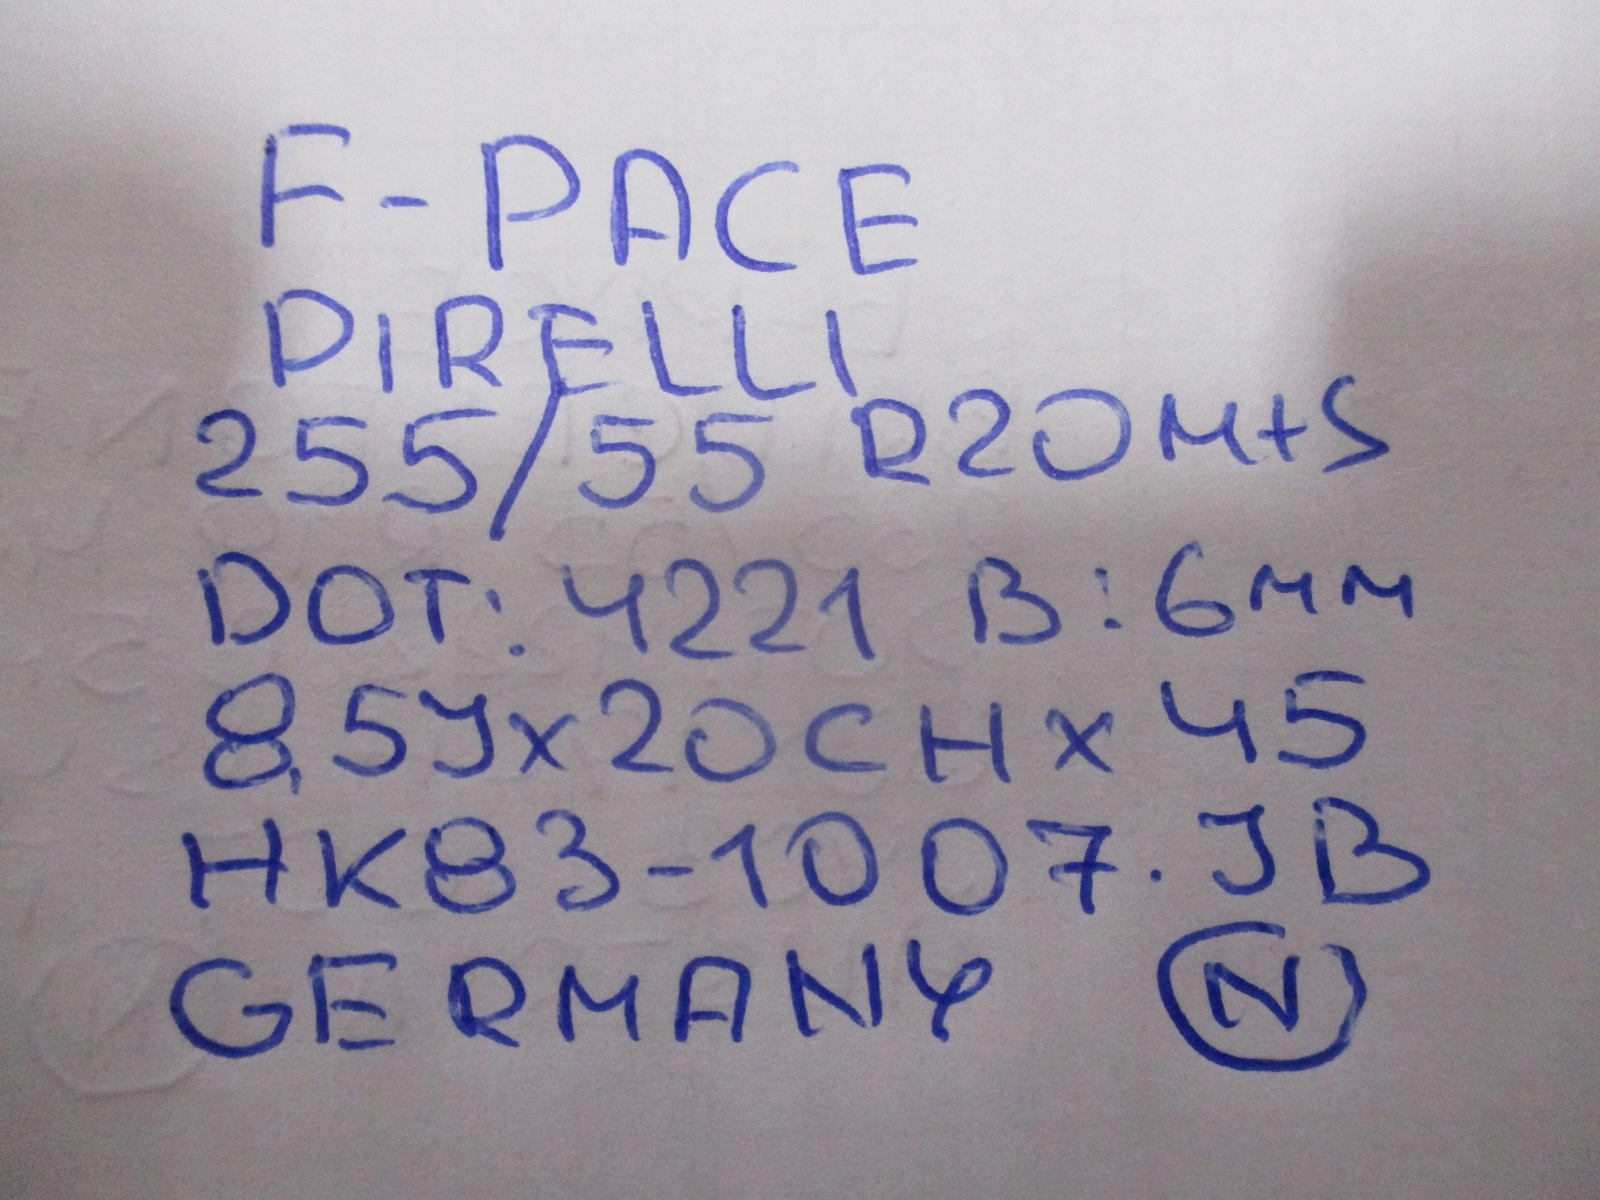 F-PACE
PIRELLI
255/55 R20 M+S
DOT: 4221 B: 6mm
8,5Jx20CHx45
HK83-1007.JB
GERMANY N